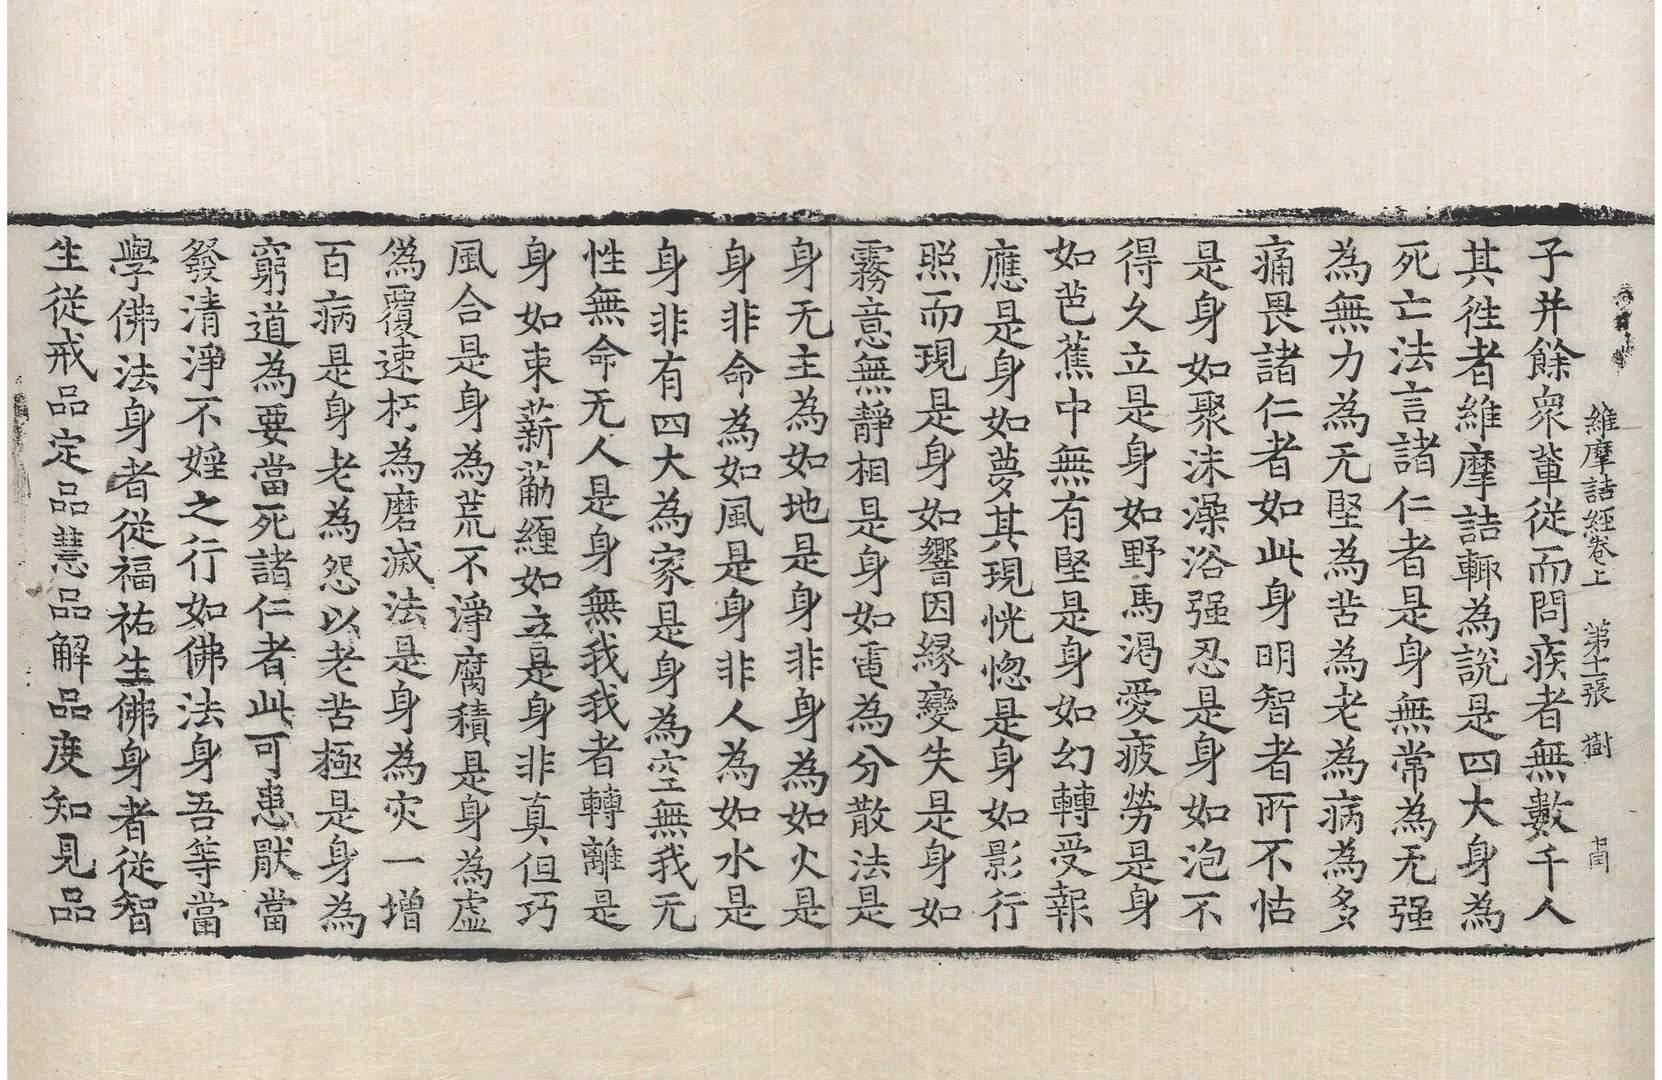 維摩詰經卷上　第十一張　樹
子并餘衆輩從而問疾者無數千人
其徃者維摩詰輙為說是四大身為
死亡法言諸仁者是身無常為无强
為無力為无堅為苦為老為病為多
痛畏諸仁者如此身明智者所不怙
是身如聚沫澡浴强忍是身如泡不
得久立是身如野馬渴愛疲勞是身
如芭蕉中無有堅是身如幻轉受報
應是身如夢其現恍惚是身如影行
照而現是身如響因緣變失是身如
霧意無靜相是身如電為分散法是
身无主為如地是身非身為如火是
身非命為如風是身非人為如水是
身非有四大為家是身為空無我无
性無命无人是身無我我者轉離是
身如束薪筋纏如立是身非真但巧
風合是身為荒不淨腐積是身為虛
僞覆速朽為磨滅法是身為灾一增
百病是身老為怨以老苦極是身為
窮道為要當死諸仁者此可患厭當
發清淨不婬之行如佛法身吾等當
學佛法身者從福祐生佛身者從智
生從戒品定品慧品解品度知見品